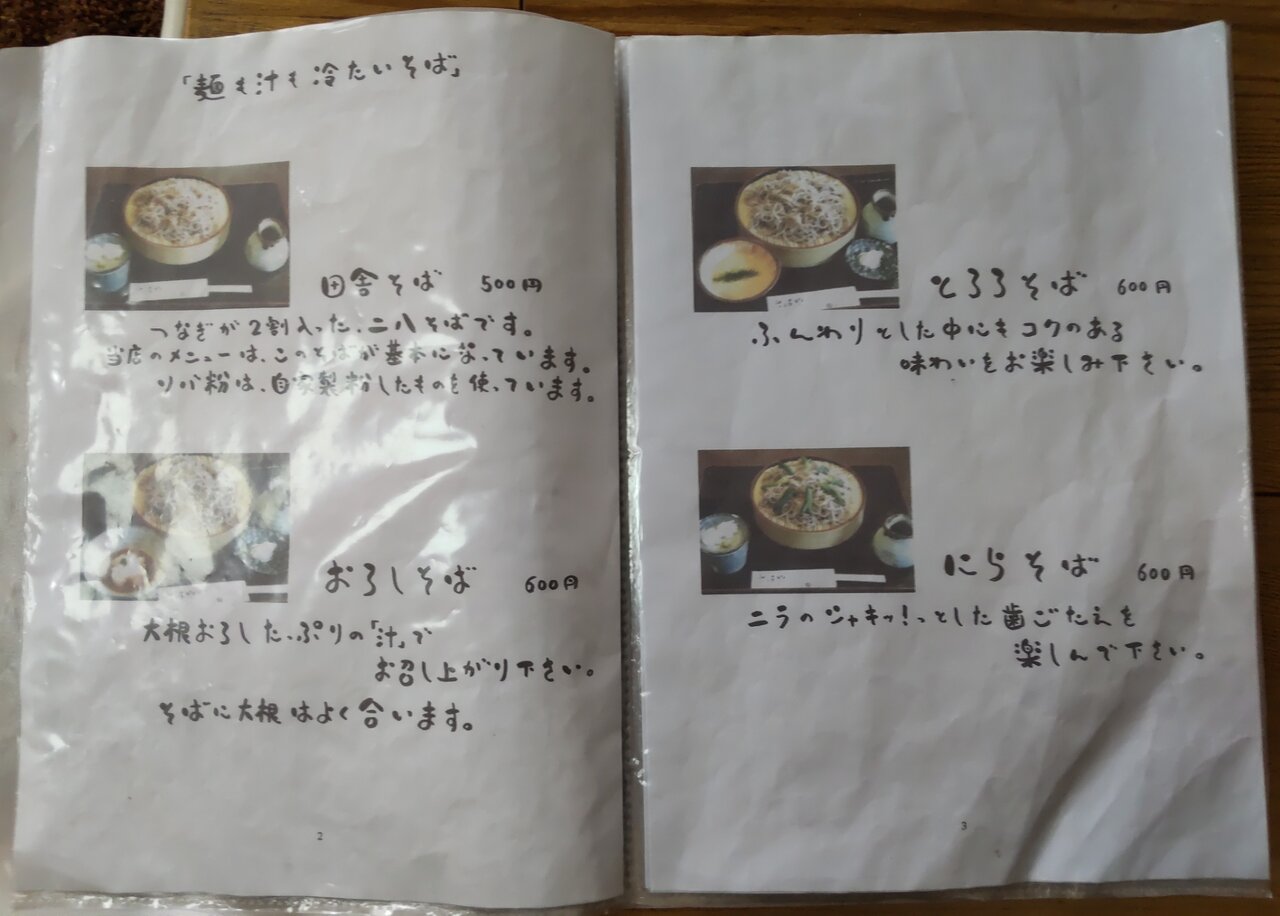 「麺も汁も冷たいそば」
田舎そば 500円
つなぎが2割入った、二八そばです。
当店のメニューは、このそばが基本になっています。
ソバ粉は、自家製粉したものを使っています。
おろしそば 600円
大根おろしたっぷりの「汁」で
お召し上がり下さい。
そばに大根はよく合います。
2
とろろそば 600円
ふんわりとした中にもコクのある
味わいをお楽しみ下さい。
にらそば 600円
ニラのジャキッ!っとした歯ごたえを
楽しんで下さい。
3